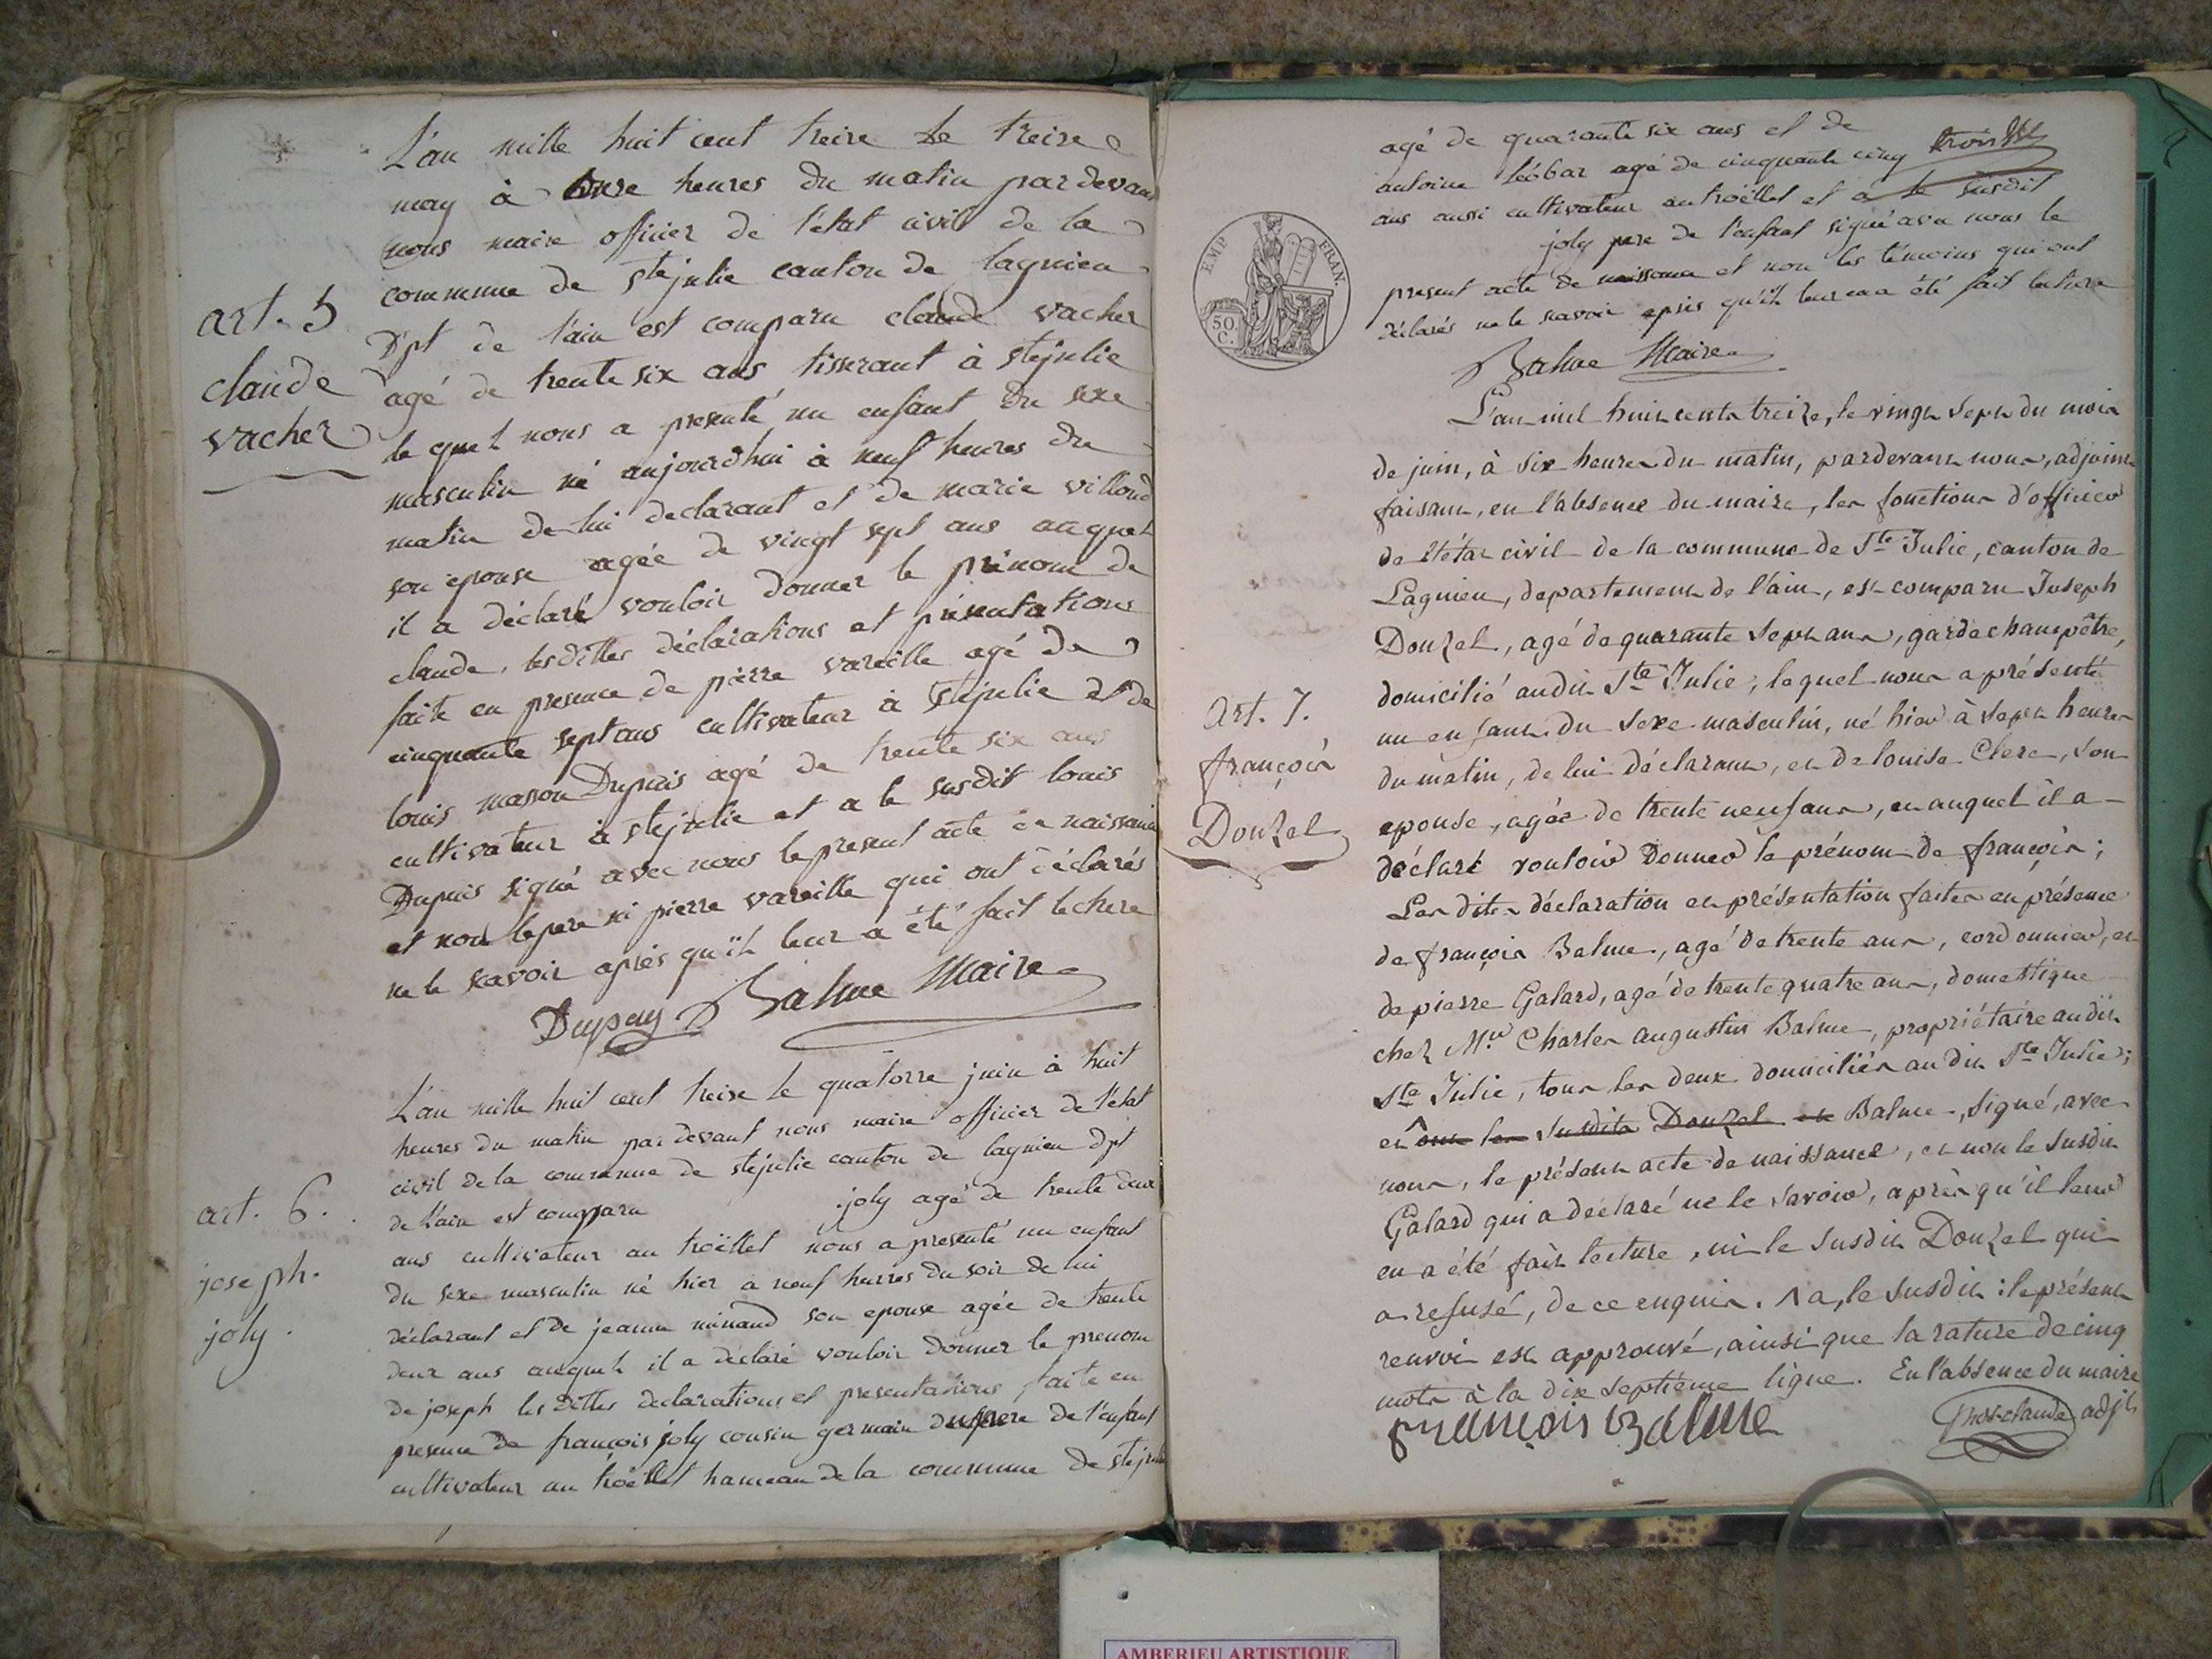 L'an mille huit cent treize le treize
may à onze heures du matin pardevant
nous maire officier de l'état civil de la
commune de ste julie canton de lagnieu
Dpt de l'ain est comparu claude vacher
agé de trente six ans tisserant à ste julie
le quel nous a presenté un enfant du sexe
masculin né aujourdhui à neuf heures du
matin de lui declarant et de marie villoud
son epouse agée de vingt sept ans auquel
il a déclaré vouloir donner le prénom de
claude, les dittes déclarations et présentations
faite en presence de pierre vareille agé de
cinquante sept ans cultivateur à ste julie et de
louis masson Dupuis agé de trente six ans
cultivateur à ste julie et a le susdit louis
Dupuis signé avec nous le present acte de naissance
et non le pere ni pierre vareille qui ont déclarés
ne le savoir après qu'il leur a été fait lecture
Dupuy Balme Maire
art. 5
claude
vacher
L'an mille huit cent treize le quatorze juin à huit
heures du matin par devant nous maire officier de l'état
civil de la commune de ste julie canton de lagnieu dpt
de l'ain est comparu joly agé de trente deux
ans cultivateur au troëllet nous a presenté un enfant
du sexe masculin né hier a neuf heures du soir de lui
déclarant et de jeanne minand son epouse agée de trente
deux ans auquel il a déclaré vouloir donner le prenom
de joseph les dittes declarations et presentations faite en
presence de françois joly cousin germain du pere de l'enfant
cultivateur au troëllet hameau de la commune de ste julie
art. 6.
joseph.
joly.
agé de quarante six ans et de
antoine Léobar agé de cinquante cinq
ans aussi cultivateur au troëllet et a le susdit
joly pere de l'enfant signé avec nous le
present acte de naissance et non les témoins qui ont
déclarés ne le savoir après qu'il leur en a été fait lecture
Balme Maire
EMP. FRAN.
50 C.
L'an mil huit cent treize, le vingt sept du mois
de juin, à six heures du matin, pardevant nous, adjoint
faisant, en l'absence du maire, les fonctions d'officier
de l'état civil de la commune de Ste Julie, canton de
Lagnieu, departement de l'ain, est comparu Joseph
Douzel, agé de quarante sept ans, garde champêtre,
domicilié audit Ste Julie, lequel nous a présenté
un enfant du sexe masculin, né hier à sept heures
du matin, de lui déclarant, et de louise Clerc, son
epouse, agée de trente neuf ans, et auquel il a
déclaré vouloir donner le prénom de françois;
Les dites déclaration et présentation faites en présence
de françois Balme, agé de trente ans, cordonnier, et
de pierre Galard, agé de trente quatre ans, domestique
chez Mr Charles augustin Balme, propriétaire audit
Ste Julie, tous les deux domiciliés audit Ste Julie;
et ont les susdits Douzel et Balme, signé, avec
nous, le présent acte de naissance, et non le susdit
Galard qui a déclaré ne le savoir, après qu'il leur
en a été fait lecture, ni le susdit Douzel qui
a refusé, de ce enquis. ^ a, le susdit : le présent
renvoi est approuvé, ainsi que la rature de cinq
mots à la dix septième ligne. En l'absence du maire
françois Balme
adjt
art. 7.
françois
Douzel
AMBERIEU ARTISTIQUE